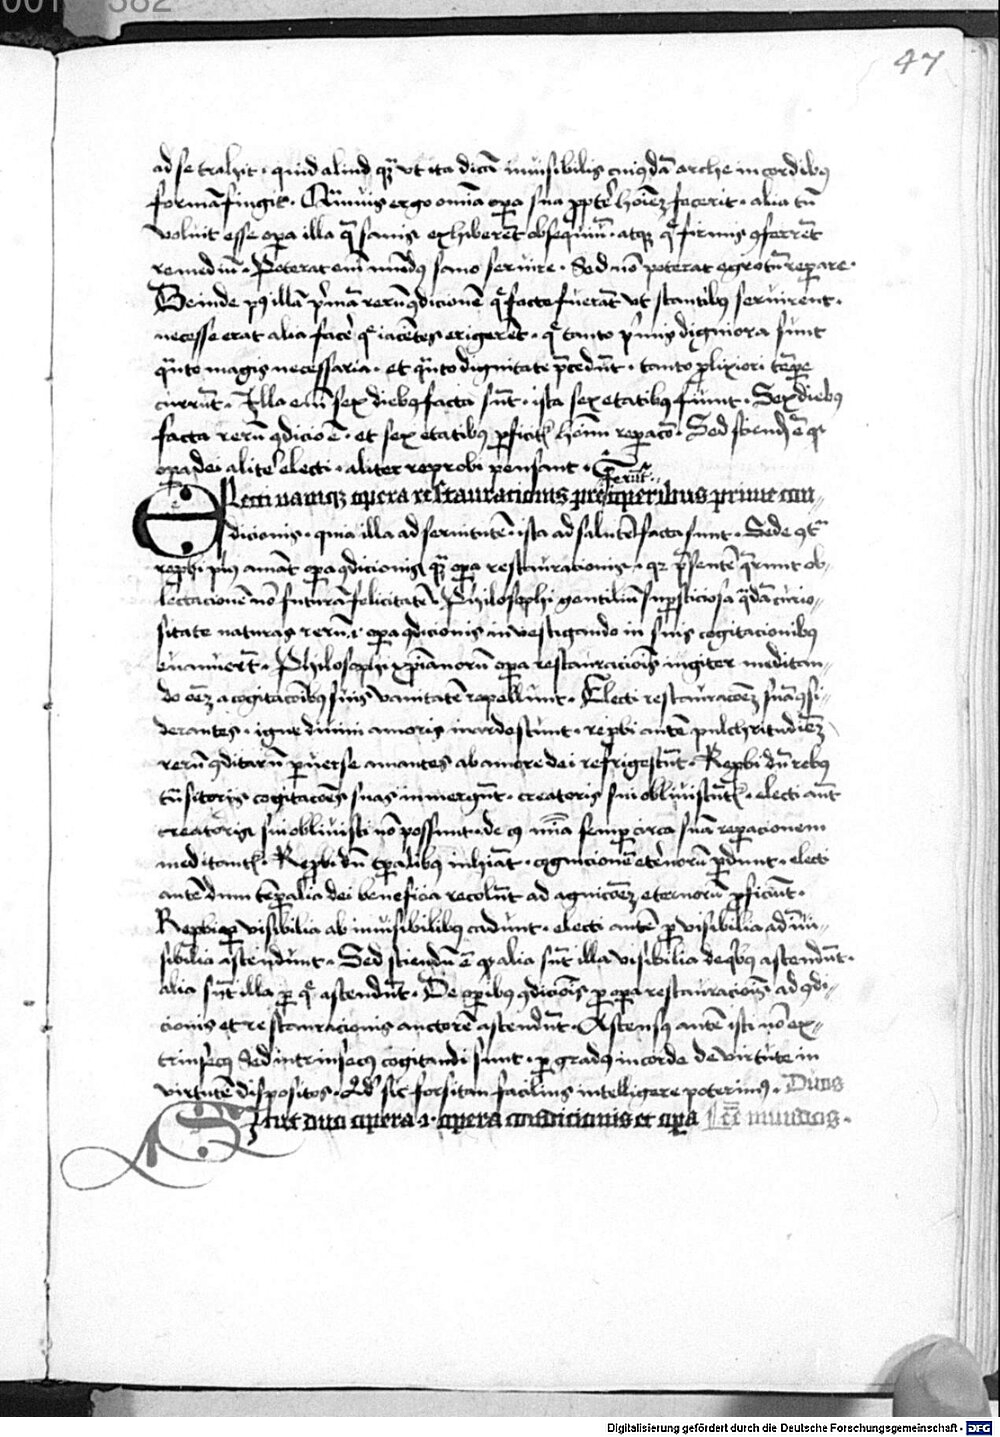 47
ad se trahit · quid aliud qz̃ vt ita dicã inuisibilis cuiusdã arche in cordibꝰ
formã fingit · Qm̃uis ergo omĩa opa sua ppter hoĩez fecerit · alia tñ
voluit esse opa illa q̃ sanis exhiberẽt obsequiũ · atqz q̃ firmis ꝯferrẽt
remediũ · Poterat eñi mũdꝰ sano seruire · Sed nõ poterat egrotũ repare ·
Deinde pꝰ illã pĩmã rerũ ꝯdicionẽ q̃ facta fuerãt vt stantibꝰ seruirent ·
necesse erat alia facẽ q̃ iacẽtes erigerẽt · q̃ tanto pĩmis digniora sunt
qũto magis necessaria · et qũto dignitate p̃cedũt · tanto plixiori tẽpe
currũt · Illa eñi sex diebꝰ facta sũt · ista sex etatibꝰ fiũnt · Sex diebꝰ
facta rerũ ꝯdicio ẽ · et sex etatibꝰ pficit hõim repacõ · Sed sciendũ ẽ q
opa dei alitẽ electi · aliter reprobi pensant ·
ELecti namqz opera restauracionis operibus prime con-
dicionis · quia illa ad seruitutẽ · ista ad salutẽ facta sunt · Sed e ꝯt̃
repbi plꝰ amãt opa ꝯdicionis qz̃ opa restauracionis · qz p̃sentẽ q̃runt ob-
lectacionẽ nõ futurã felicitatẽ · Philosophi gentiliũ supsticiosa q̃dã curio-
sitate naturas rerũ ·i· opa ꝯdicionis inuestigando in suis cogitacionibus
euanuerũt · Philosophi xp̃ianorũ opa restauracionĩs iugiter meditan-
do oẽz a cogitacõibꝰ suis vanitatẽ repellunt · Electi restauracõez suã ꝯsi-
derantes · igne diuini amoris inardescunt · repbi autẽ pulchritudiẽz
rerũ ꝯditarũ peruerse amantes ab amore dei refrigescũt · Repbi dũ rebꝰ
trãsitorijs cogitacões suas inmergũt · creatoris sui obliuiscũt · electi aũt
creatoris sui obliuisci nõ possunt · de cꝰ mĩa semp circa suã repacionem
meditant · Repbi dũ tpalibus inhiãt · cognicionẽ eternorũ pdunt · electi
autẽ dum tẽpalia dei beneficia recolũt ad agnicõez eternorũ pficiũt ·
Repbi p visibilia ab inuisibilibꝰ cadunt · electi autẽ p visibilia ad ĩui-
sibilia ascendunt · Sed sciendũ ẽ qz alia sũt illa visibilia de qbꝰ ascendũt ·
alia sũt illa p q̃ ascendũt · De opibꝰ ꝯdicionĩs p opa restauracionĩs ad ꝯdi-
cionis et restauracionis auctorẽ ascendũt · Ascensꝰ autẽ isti nõ ex-
trinsecꝰ sed intrinsecꝰ cogitandi sunt · p gradꝰ in corde de virtute in
virtutẽ dispositos · Qd̃ sic forsitan facilius intelligere poterimꝰ · Duos
SUnt duo opera ·i· opera condicionis et opa eẽ mundos ·
Digitalisierung gefördert durch die Deutsche Forschungsgemeinschaft - DFG